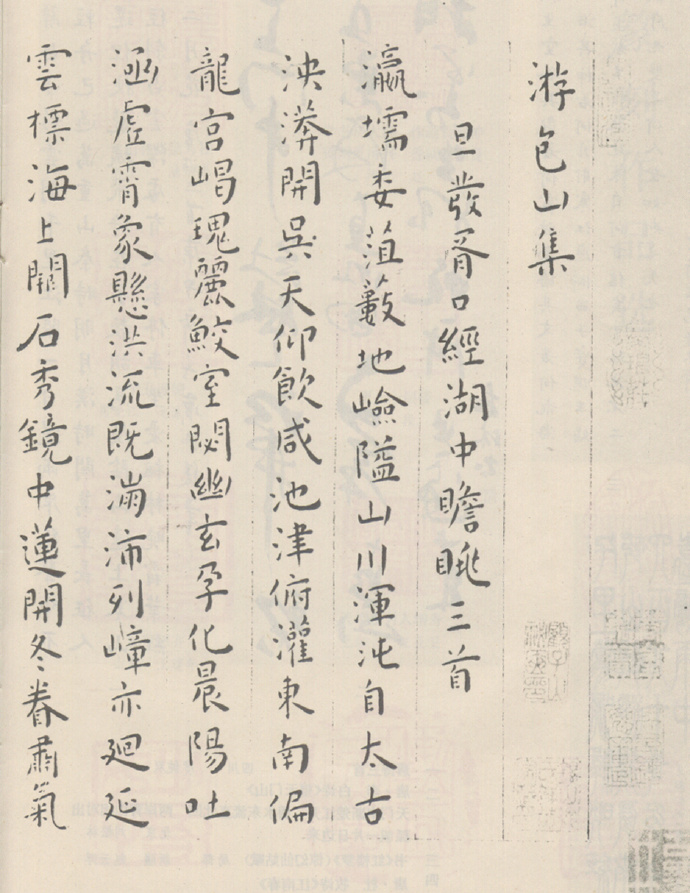 游包山集
旦發胥口經湖中瞻眺三首
瀛壖委菹藪地嶮隘山川渾沌自太古
泱漭開吳天仰飲咸池津俯灌東南偏
龍宮嵑瑰麗鮫室閟幽玄孕化晨陽吐
涵虛霄象懸洪流既滿沛列嶂亦迴延
雲標海上闕石秀鏡中蓮開冬眷肅氣